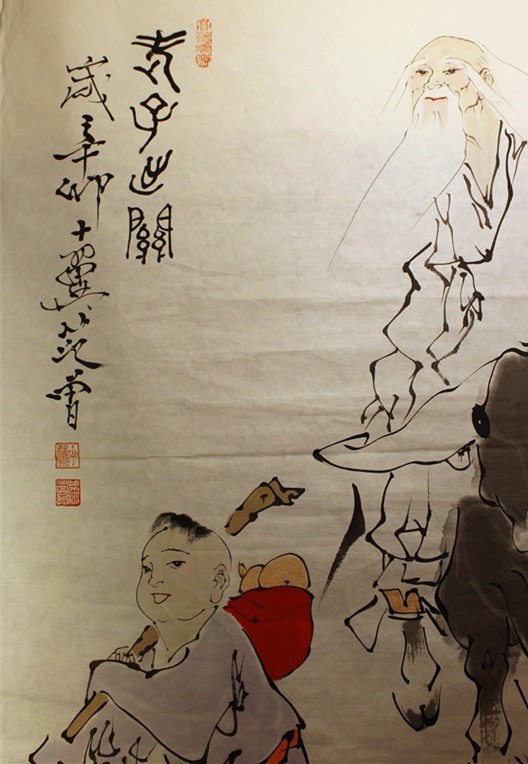 老子出關
歲辛卯十翼范曾